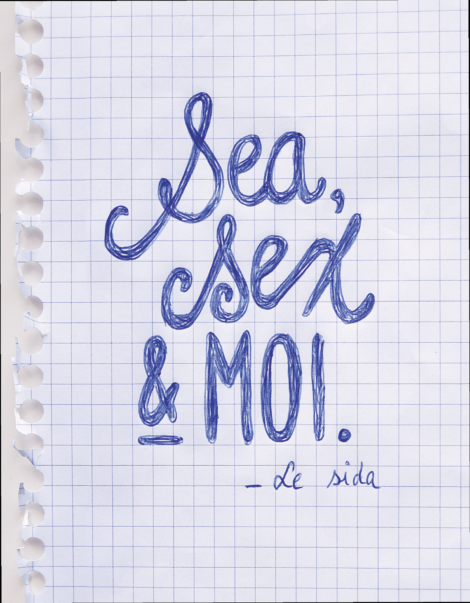 Sea,
sex
& MOI.
- Le sida